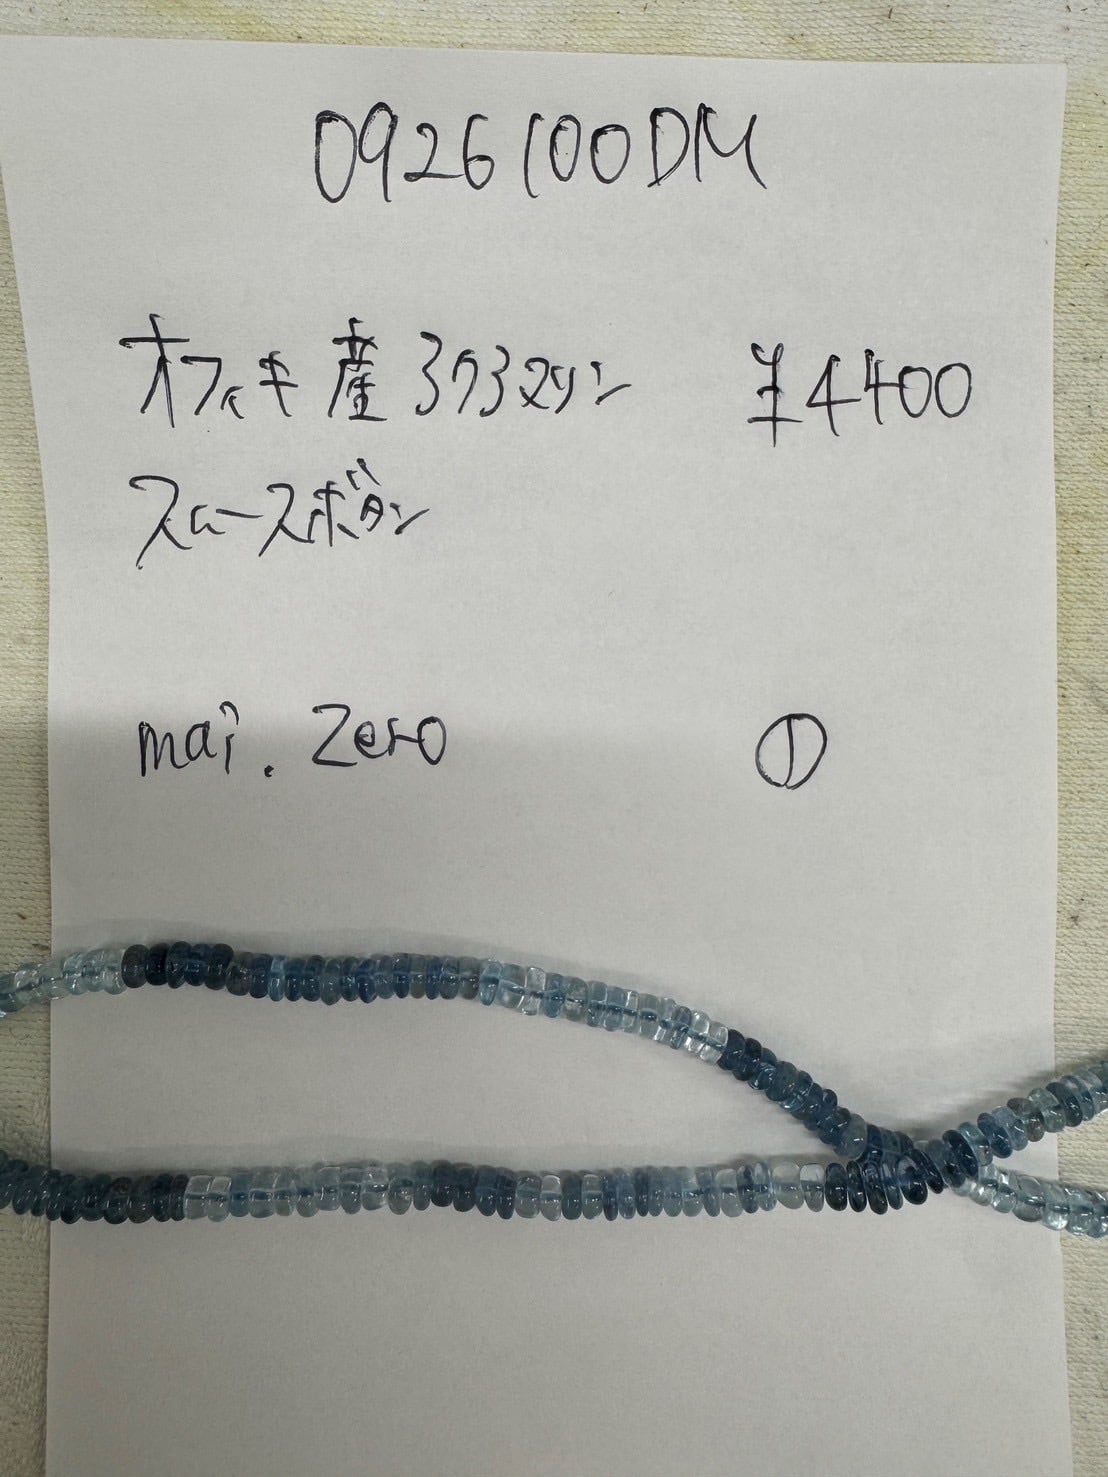 0926100DM
オフィキ産 アクアマリン ¥4400
スムースボタン
mai. Zero ①